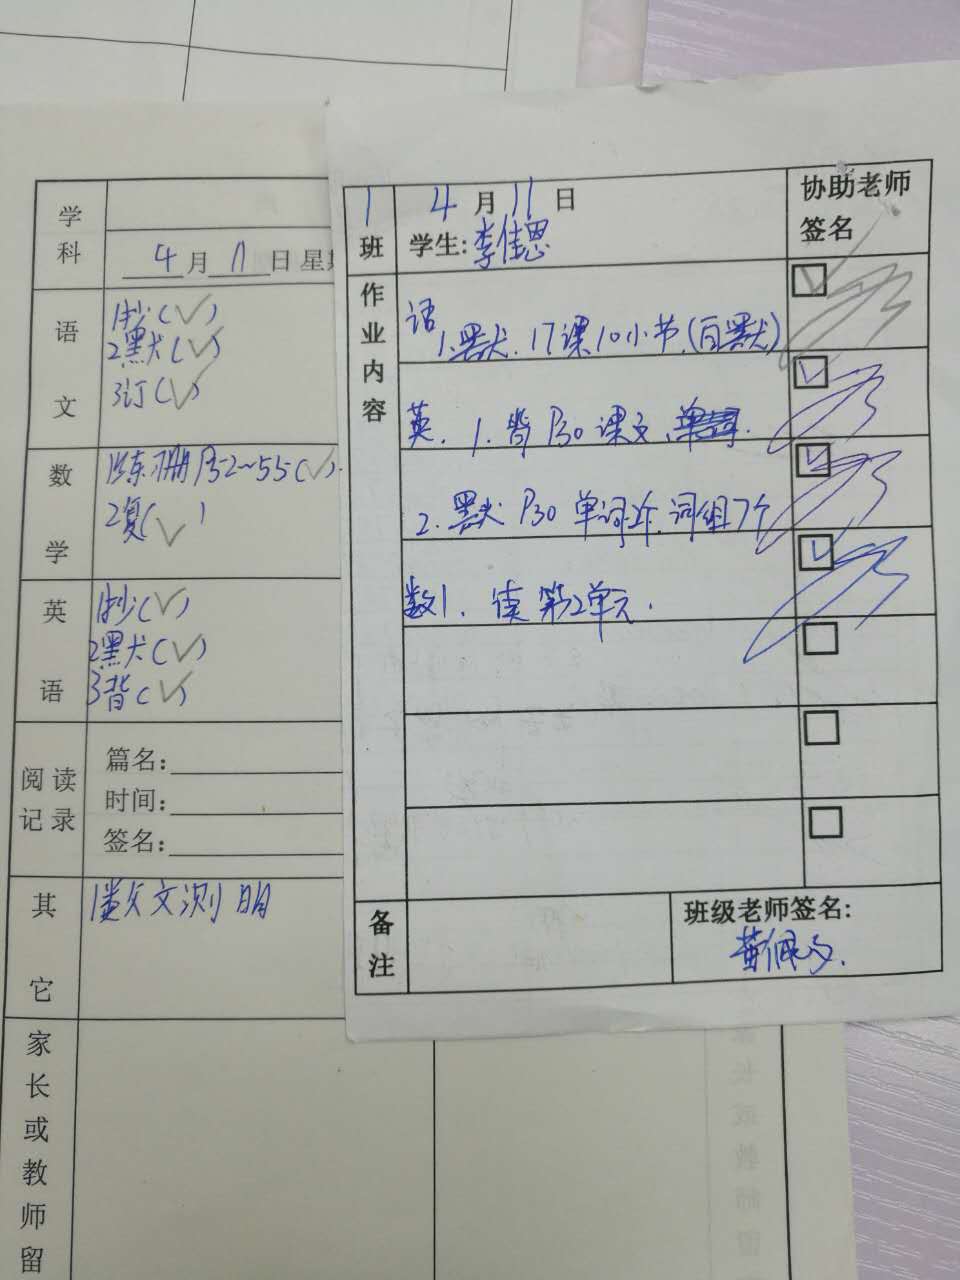 学科
4月11日 星期
语文
1抄(✓)
2默(✓)
3订(✓)
数学
1练习册P52~55(✓)
2复(✓)
英语
1抄(✓)
2默(✓)
3背(✓)
阅读记录
篇名:
时间:
签名:
其它
文测 明
家长或教师留
1班
4月11日
学生:李佳思
协助老师签名
作业内容
语
1.默.17课10小节.(自默)
英.1.背P30课文、
2.默P30单词2个.词组7个
数1.读第2单元.
备注
班级老师签名:
黄佩